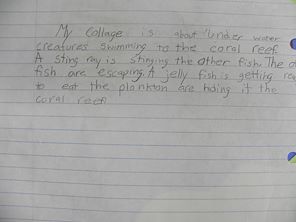 My Collage is about Under water
creatures swimming to the coral reef.
A Sting ray is stinging the other fish. The o
fish are escaping. A jelly fish is getting rea
to eat the plankton are hiding it the
coral reef